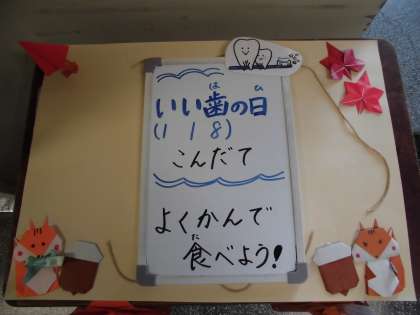 いい歯の日
(118)
こんだて
よくかんで
食べよう!